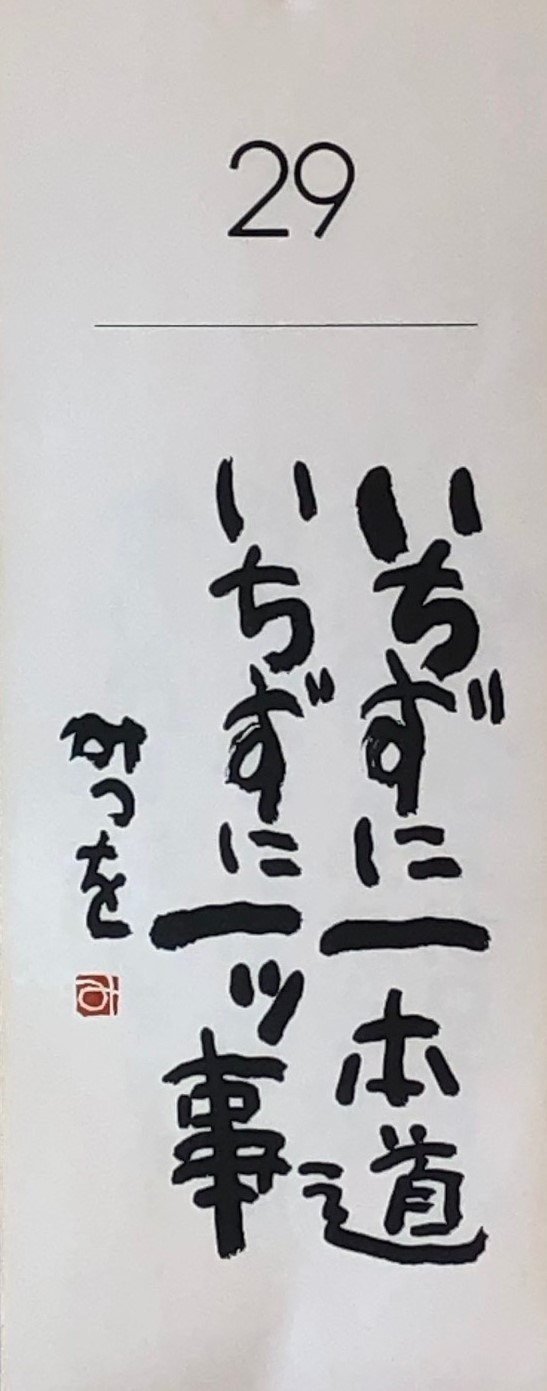 29
いちずに一本道
いちずに一ッ事
みつを
み